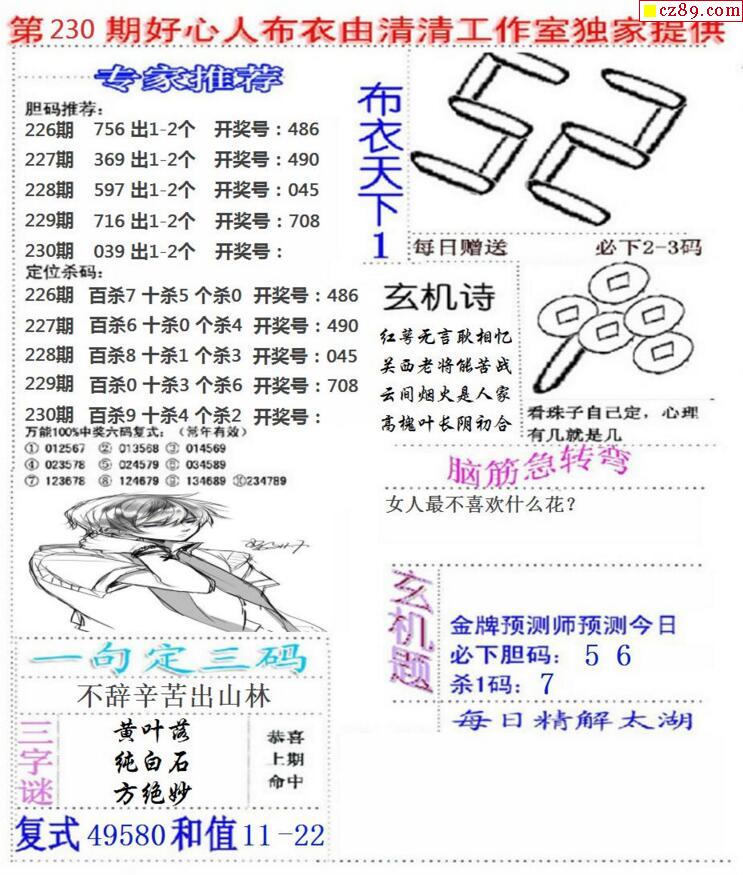 cz89.com
第230期好心人布衣由清清工作室独家提供
专家推荐
胆码推荐：
226期 756 出1-2个 开奖号：486
227期 369 出1-2个 开奖号：490
228期 597 出1-2个 开奖号：045
229期 716 出1-2个 开奖号：708
230期 039 出1-2个 开奖号：
定位杀码：
226期 百杀7 十杀5 个杀0 开奖号：486
227期 百杀6 十杀0 个杀4 开奖号：490
228期 百杀8 十杀1 个杀3 开奖号：045
229期 百杀0 十杀3 个杀6 开奖号：708
230期 百杀9 十杀4 个杀2 开奖号：
万能100%中奖六码复式：（常年有效）
① 012567 ② 013568 ③ 014569
④ 023578 ⑤ 024579 ⑥ 034589
⑦ 123678 ⑧ 124679 ⑨ 134689 ⑩234789
一句定三码
不辞辛苦出山林
三字谜
黄叶落
纯白石
方绝妙
恭喜
上期
命中
复式49580和值11-22
布衣天下1
52
每日赠送 必下2-3码
玄机诗
红萼无言耿相忆
关西老将能苦战
云间烟火是人家
高槐叶长阴初合
看珠子自己定，心理
有几就是几
脑筋急转弯
女人最不喜欢什么花？
玄机题
金牌预测师预测今日
必下胆码： 5 6
杀1码： 7
每日精解太湖